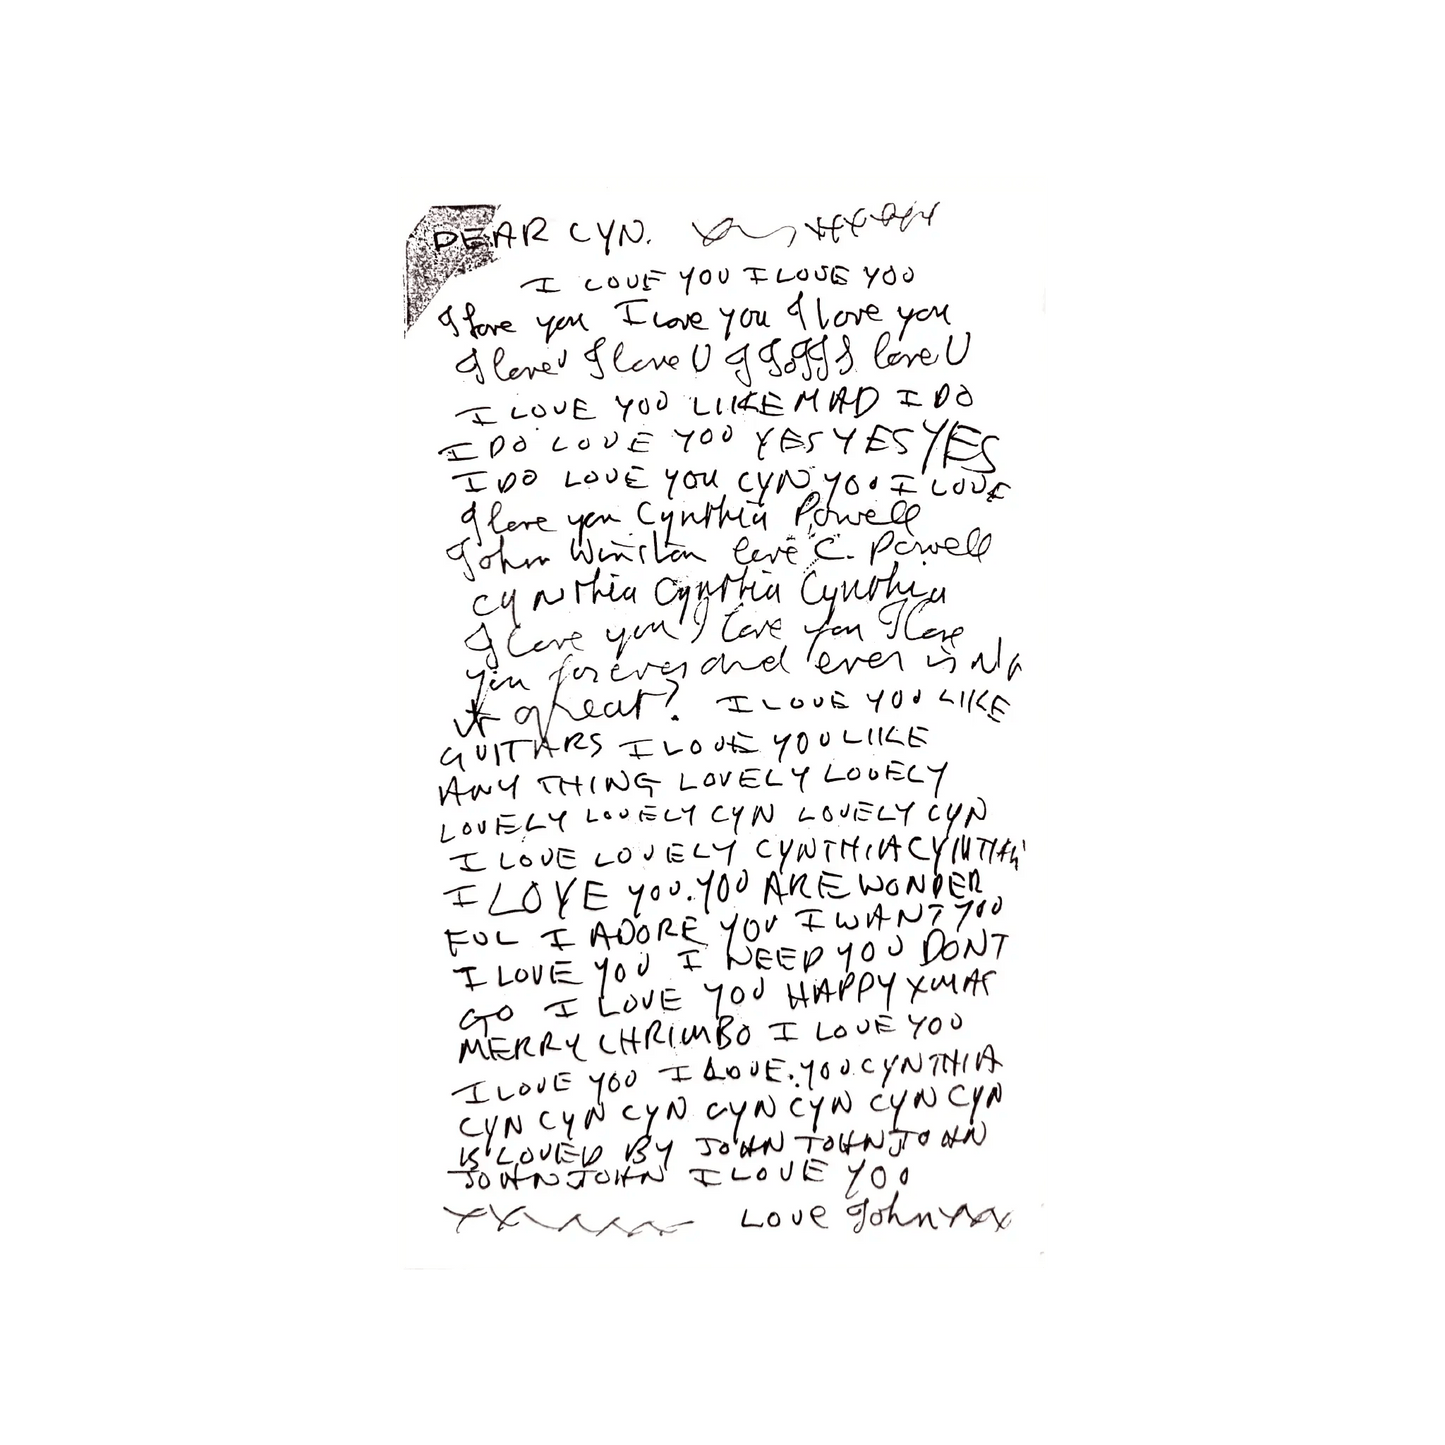 DEAR CYN.
I LOVE YOU I LOVE YOU
I love you I Love you I love you
I love U I love U I I I I I I love U
I LOVE YOU LIKE MAD I DO
I DO LOVE YOU YES YES YES
I DO LOVE YOU CYN YOU I LOVE
I love you Cynthia Powell
John Winston love C. Powell
Cynthia Cynthia Cynthia
I love you I love you I love
you forever and ever isn't
it great? I LOVE YOU LIKE
GUITARS I LOVE YOU LIKE
ANY THING LOVELY LOVELY
LOVELY LOVELY CYN LOVELY CYN
I LOVE LOVELY CYNTHIA CYNTHIA
I LOVE YOU. YOU ARE WONDER
FUL I ADORE YOU I WANT YOU
I LOVE YOU I NEED YOU DONT
GO I LOVE YOU HAPPY XMAS
MERRY CHRIMBO I LOVE YOU
I LOVE YOU I LOVE. YOU CYNTHIA
CYN CYN CYN CYN CYN CYN CYN
IS LOVED BY JOHN JOHN JOHN
JOHN JOHN I LOVE YOU
Love John xxx